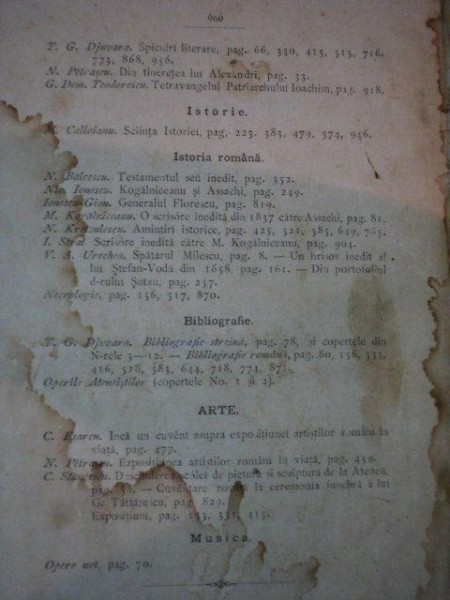 960
T. G. Djuvara. Spicuiri literare, pag. 66, 330, 413, 515, 716,
773, 868, 956.
N. Pĕtrașcu. Din tinerețea lui Alexandri, pag. 33.
G. Dem. Teodorescu. Tetravangelul Patriarchului Ioachim, pag. 918.
Istorie.
Colloianu. Sciința Istoriei, pag. 223. 383, 479, 574, 946.
Istoria română.
N. Bălcescu. Testamentul seŭ inedit, pag. 352.
Nic. Ionescu. Kogălniceanu și Assachi, pag. 249.
Ionescu-Gion. Generalul Florescu, pag. 819.
M. Kogălniceanu. O scrisóre inedită din 1837 către Assachi, pag. 81.
N. Kretzulescu. Amintiri istorice, pag. 423, 521, 585, 649,
I. Strat. Scrisóre inedită către M. Kogălniceanu, pag. 904.
V. A. Urechea. Spătarul Milescu, pag. 8. — Un hrisov inedit al
lui Ștefan-Vodă din 1658, pag. 161. — Din portofoliul
d-rului Șutzu, pag. 237.
Necrologie, pag. 136, 517, 870.
Bibliografie.
T. G. Djuvara. Bibliografie streină, pag. 78, și copertele din
N-rele 3—12. — Bibliografie română, pag. 80, 158, 333,
416, 518, 583, 644, 718, 774, 871.
Operile Ateneiștilor (copertele No. 1 și 2).
ARTE.
C. Esarcu. Incă un cuvĕnt asupra exposițiunei artiștilor români in
viață, pag. 477.
N. Pĕtrașcu. Exposițiunea artiștilor români în viață, pag. 459.
C. Stăncescu. Deschiderea scólei de pictură și sculptura de la Ateneu,
pag. — Cuvĕntare rostită la ceremonia funebră a lui
G. Tătărescu, pag. 829.
Expozițiuni, pag. 153, 331, 413.
Musica.
Opere noi, pag. 70.